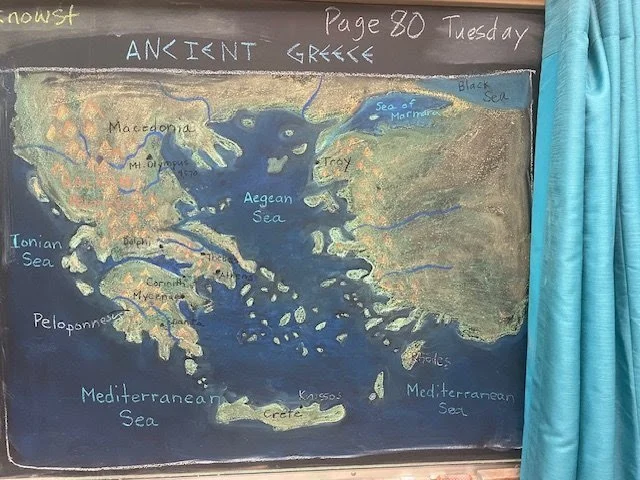 Knowst
Page 80 Tuesday
ANCIENT GREECE
Black
Sea
Sea of
Marmara
Macedonia
Mt. Olympus
9570
Troy
Aegean
Sea
Ionian
Sea
Delphi
Thebes
Athens
Corinth
Mycenae
Peloponnesus
Sparta
Rhodes
Mediterranean
Sea
Knossos
Crete
Mediterranean
Sea